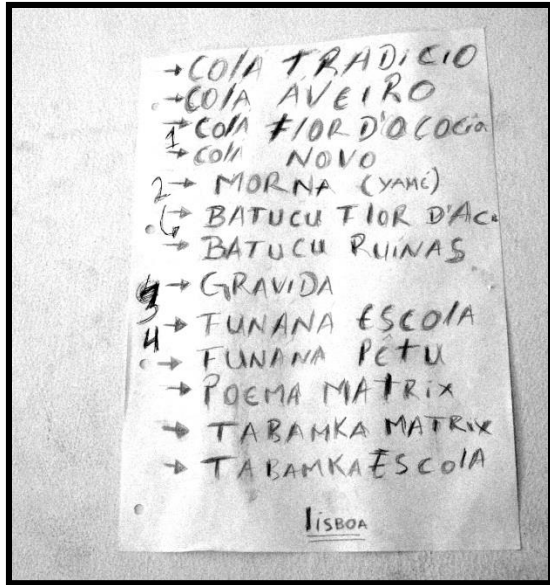 → COlA TRADiCIO
→ COlA AVEIRO
1 → COlA FlOR D'A COCia
→ COlA NOVO
2 → MORNA (YAMÉ)
6 → BATUCU FlOR D'AC.
→ BATUCU RUINAS
→ GRAVIDA
3 → FUNANA ESCOlA
4 → FUNANA PÉTU
→ POEMA MATRix
→ TABAMKA MATRix
→ TABAMKA ESCOlA
lISBOA